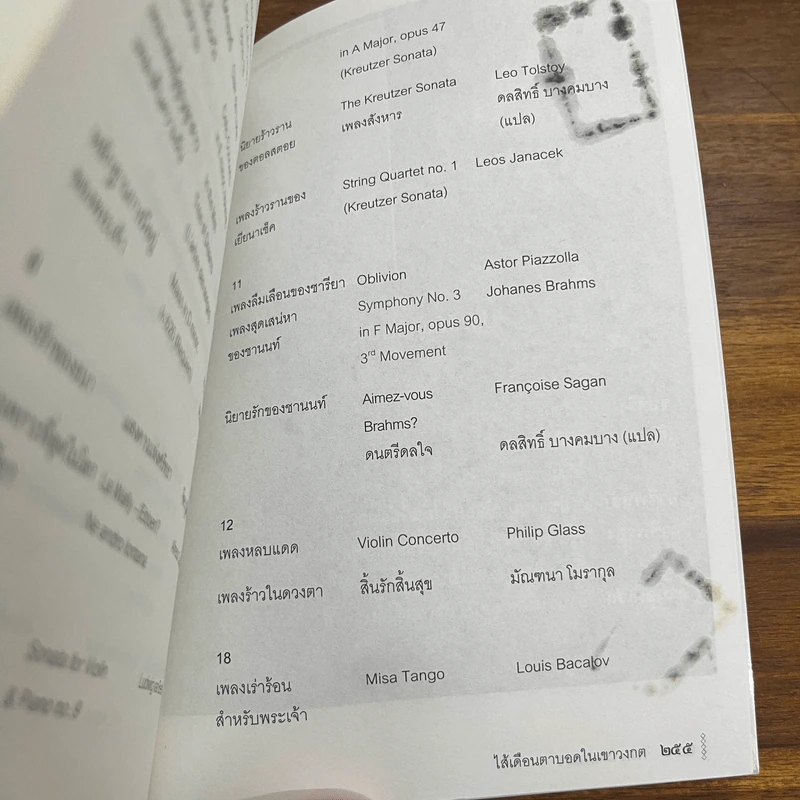 in A Major, opus 47
(Kreutzer Sonata)
นิยายร้าวราน The Kreutzer Sonata Leo Tolstoy
ของตอลสตอย เพลงสังหาร ดลสิทธิ์ บางคมบาง
(แปล)
เพลงร้าวรานของ String Quartet no. 1 Leos Janacek
เยียนาเช็ค (Kreutzer Sonata)
11
เพลงลืมเลือนของซารียา Oblivion Astor Piazzolla
เพลงสุดเสน่หา Symphony No. 3 Johanes Brahms
ของชานนท์ in F Major, opus 90,
3rd Movement
นิยายรักของชานนท์ Aimez-vous Françoise Sagan
Brahms?
ดนตรีดลใจ ดลสิทธิ์ บางคมบาง (แปล)
12
เพลงหลบแดด Violin Concerto Philip Glass
เพลงร้าวในดวงตา สิ้นรักสิ้นสุข มัณฑนา โมรากุล
18
เพลงเร่าร้อน Misa Tango Louis Bacalov
สำหรับพระเจ้า
ไส้เดือนตาบอดในเขาวงกต ๒๕๕
Sonata for Violin
& Piano no.9